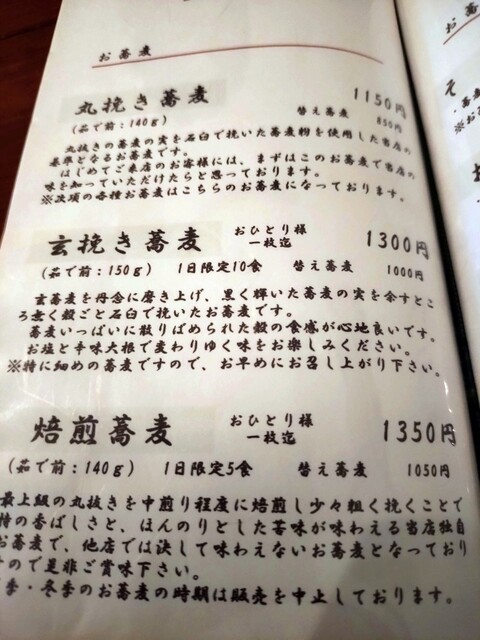 お蕎麦
丸挽き蕎麦 1150円
(茹で前:140g) 替え蕎麦 850円
丸抜きの蕎麦の実を石臼で挽いた蕎麦粉を使用した当店の
基準となるお蕎麦です。
はじめてご来店のお客様には、まずはこのお蕎麦で当店の
味を知っていただけたらと思っております。
※次項の各種お蕎麦はこちらのお蕎麦になっております。
玄挽き蕎麦 おひとり様一枚迄 1300円
(茹で前:150g) 1日限定10食 替え蕎麦 1000円
玄蕎麦を丹念に磨き上げ、黒く輝いた蕎麦の実を余すとこ
ろ無く殻ごと石臼で挽いたお蕎麦です。
蕎麦いっぱいに散りばめられた殻の食感が心地良いです。
お塩と辛味大根で変わりゆく味をお楽しみください。
※特に細めの蕎麦ですので、お早めにお召し上がり下さい。
焙煎蕎麦 おひとり様一枚迄 1350円
(茹で前:140g) 1日限定5食 替え蕎麦 1050円
最上級の丸抜きを中煎り程度に焙煎し少々粗く挽くことで
特の香ばしさと、ほんのりとした苦味が味わえる当店独自
お蕎麦で、他店では決して味わえないお蕎麦となっており
ので是非ご賞味下さい。
季・冬季のお蕎麦の時期は販売を中止しております。